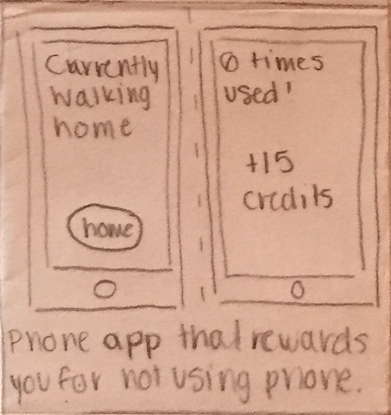 Currently
walking
home
home
0 times
used!
+15
credits
Phone app that rewards
you for not using phone.